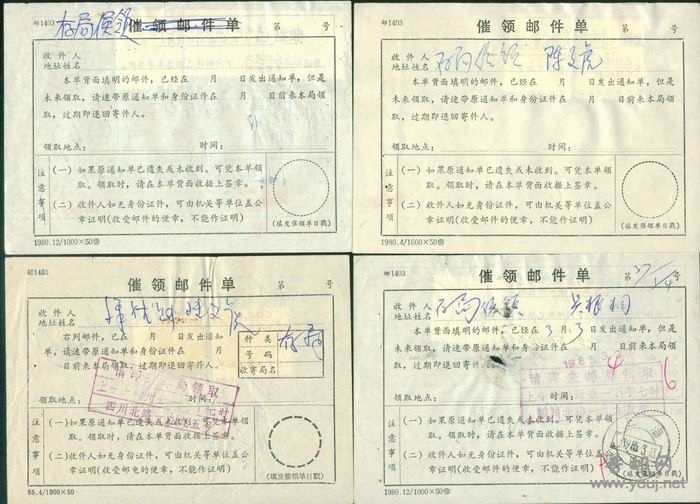 邮1403
存局候领
催领邮件单
第 号
收件人
地址姓名
本单背面填明的邮件，已经在 月 日发出通知单，但是
未来领取，请速带原通知单和身份证件在 月 日前来本局领
取，过期即退回寄件人。
领取地点： 时间：
注意事项
(一) 如果原通知单已遗失或未收到。可凭本单领
取。领取时，请在本单背面收据上签章。
(二) 收件人如无身份证件，可由机关等单位盖公
章证明(收受邮件的便章，不能作证明)
(填发催领单日戳)
1980.12/1000×50
邮1403
催领邮件单
第 号
收件人
地址姓名
本单背面填明的邮件，已经在 月 日发出通知单，但是
未来领取，请速带原通知单和身份证件在 月 日前来本局领
取，过期即退回寄件人。
领取地点： 时间：
注意事项
(一) 如果原通知单已遗失或未收到。可凭本单领
取。领取时，请在本单背面收据上签章。
(二) 收件人如无身份证件，可由机关等单位盖公
章证明(收受邮件的便章，不能作证明)
(填发催领单日戳)
1980.4/1000×50
邮1403
催领邮件单
第 号
收件人
地址姓名
右列邮件，已在 月 日发出通知
单，请速带原通知单和身份证件在 月
日前来本局领取，过期即退回寄件人。
种类
号码
收寄局名
领取地点： 时间：
四川北路
注意事项
(一) 如原通知单已遗失或未收到，可凭本单
领取。领取时，请在本单背面收据上签章。
(二) 收件人如无身份证件，可由机关等单位盖公
章证明(收受邮电的便章，不能作证明)
(填发催领单日戳)
85.4/1000×50
邮1403
催领邮件单
第 号
收件人
地址姓名
本单背面填明的邮件，已经在 3 月 3 日发出通知单，但是
未来领取，请速带原通知单和身份证件在 月 日前来本局领
取，过期即退回寄件人。
领取地点： 时间：
注意事项
(一) 如果原通知单已遗失或未收到。可凭本单领
取。领取时，请在本单背面收据上签章。
(二) 收件人如无身份证件，可由机关等单位盖公
章证明(收受邮件的便章，不能作证明)
(填发催领单日戳)
1980.12/1000×50
www.youj.net